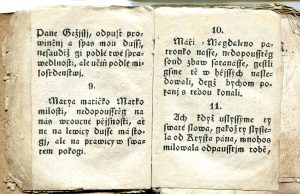 Pane Gežissi, odpust pro-
winěnj a spas mou dussi,
nesaudiž gi podlé twé spra-
wedlnosti, ale učiň podle mi-
losrdenstwj.
9.
Marya matičko Matko
milosti, nedopausstěg na
nás wroucné pěssnosti, at
ne na lewicy dusse má sto-
gj, ale na prawicy w swa-
tém pokogi.
10.
Máři - Magdaleno pa-
tronko nasse, nedopausstěg
soud zbaw satanásse, gestli
gsme tě w hřjssých násle-
dowali, degž bychom po-
kánj s tebou konali.
11.
Ach když uslyssýme ty
swaté slowa, gakožs ty slysse-
la od Krysta pána, mnohos
milowala odpausstjm tobě,